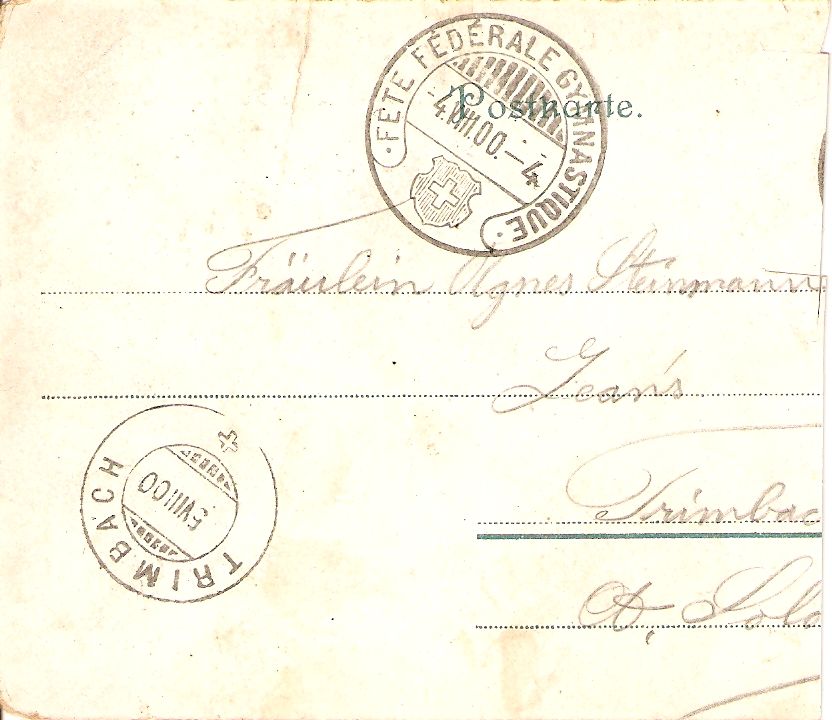 · FÊTE FÉDÉRALE GYMNASTIQUE ·
4.VIII.00.–4
Postkarte.
Fräulein Agnes Steinmann
Jean's
TRIMBACH
5 VIII 00
Trimbac
Ct. Solo